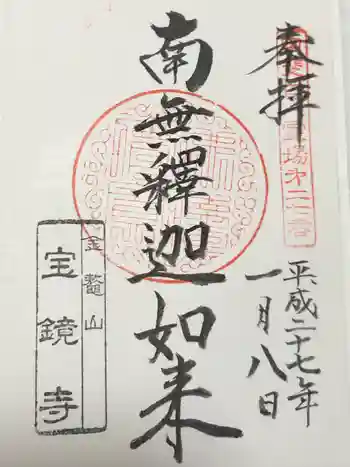 奉拝
場第二三番
平成二十七年
一月八日
南無釋迦如来
金鰲山
宝鏡寺